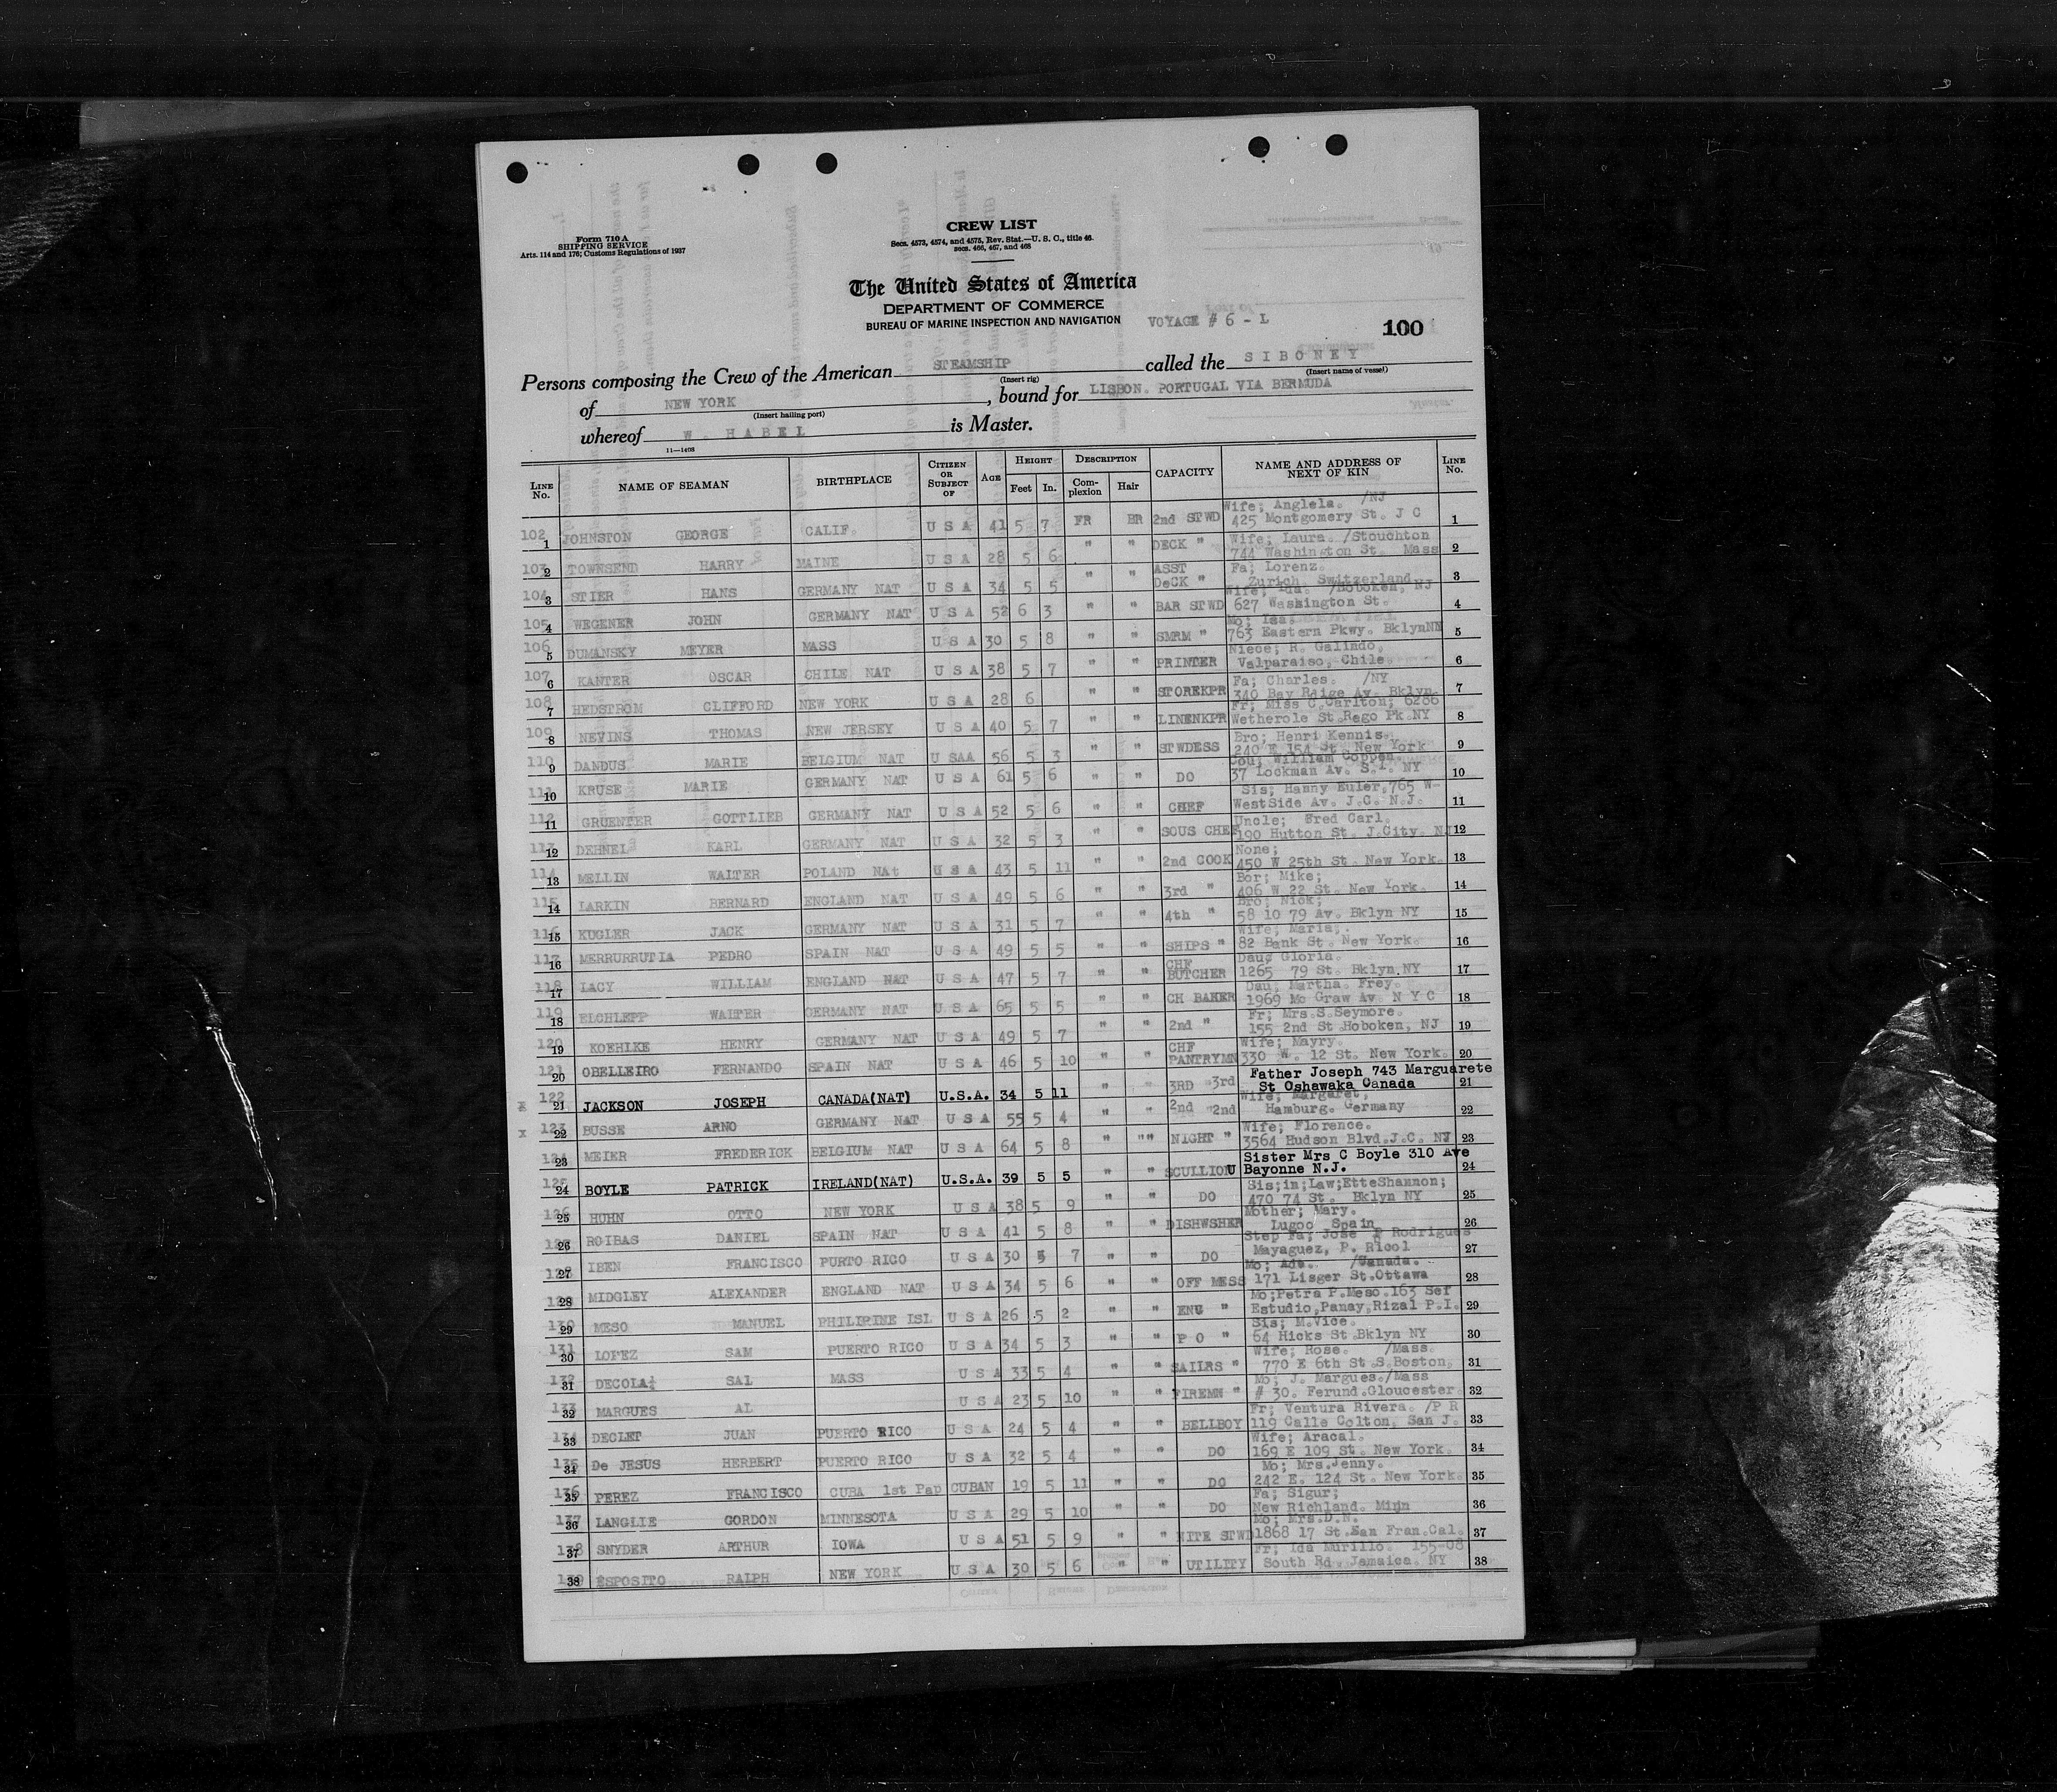 Form 710 A
SHIPPING SERVICE
Arts. 114 and 176; Customs Regulations of 1937
CREW LIST
Secs. 4573, 4574, and 4575, Rev. Stat.—U. S. C., title 46.
secs. 466, 467, and 468
The United States of America
DEPARTMENT OF COMMERCE
BUREAU OF MARINE INSPECTION AND NAVIGATION
VOYAGE # 6 - L
100
Persons composing the Crew of the American STEAMSHIP called the SIBONEY
(Insert rig) (Insert name of vessel)
of NEW YORK, bound for LISBON. PORTUGAL VIA BERMUDA
(Insert hailing port)
whereof W. HABEL is Master.
11—1408
LINE No. NAME OF SEAMAN BIRTHPLACE CITIZEN OR SUBJECT OF AGE HEIGHT Feet In. DESCRIPTION Complexion Hair CAPACITY NAME AND ADDRESS OF NEXT OF KIN LINE No.
102 1 JOHNSTON GEORGE CALIF. U S A 41 5 7 FR BR 2nd STWD Wife; Anglela. /NJ 425 Montgomery St. J C 1
103 2 TOWNSEND HARRY MAINE U S A 28 5 6 " " DECK " Wife; Laura. /Stoughton 744 Washington St. Mass 2
104 3 STIER HANS GERMANY NAT U S A 34 5 5 " " ASST DeCK " Fa; Lorenz. Zurich. Switzerland 3
105 4 WEGENER JOHN GERMANY NAT U S A 52 6 3 " " BAR STWD Wife; Ida. /Hoboken, NJ 627 Washington St. 4
106 5 DUMANSKY MEYER MASS U S A 30 5 8 " " SMRM " Mo; Ida 763 Eastern Pkwy. Bklyn 5
107 6 KANTER OSCAR CHILE NAT U S A 38 5 7 " " PRINTER Niece; R. Galindo, Valparaiso, Chile. 6
108 7 HEDSTROM CLIFFORD NEW YORK U S A 28 6 " " STOREKPR Fa; Charles. /NY 340 Bay Ridge Av. Bklyn. 7
109 8 NEVINS THOMAS NEW JERSEY U S A 40 5 7 " " LINENKPR Fr; Miss C.Carlton; 6286 Wetherole St.Rego Pk NY 8
110 9 DANDUS MARIE BELGIUM NAT U SAA 56 5 3 " " STWDESS Bro; Henri Kennis. 240 E 154 St. New York 9
111 10 KRUSE MARIE GERMANY NAT U S A 61 5 6 " " DO Cou; William Coppen. 37 Lockman Av. S.I. NY 10
112 11 GRUENTER GOTTLIEB GERMANY NAT U S A 52 5 6 " " CHEF Sis; Hanny Euler,765 W- WestSide Av. J.C. N.J. 11
113 12 DEHNEL KARL GERMANY NAT U S A 32 5 3 " " SOUS CHEF Uncle; Fred Carl. 190 Hutton St. J.City. NJ 12
114 13 MELLIN WALTER POLAND NAt U S A 43 5 11 " " 2nd COOK None; 450 W 25th St. New York. 13
115 14 LARKIN BERNARD ENGLAND NAT U S A 49 5 6 " " 3rd " Bor; Mike; 406 W 22 St. New York. 14
116 15 KUGLER JACK GERMANY NAT U S A 31 5 7 " " 4th " Bro; Nick; 58 10 79 Av. Bklyn NY 15
117 16 MERRURRUTIA PEDRO SPAIN NAT U S A 49 5 5 " " SHIPS " Wife; Maria;. 82 Bank St. New York. 16
118 17 LACY WILLIAM ENGLAND NAT U S A 47 5 7 " " CHF BUTCHER Dau; Gloria. 1265 79 St. Bklyn.NY 17
119 18 ELCHLEPP WALTER GERMANY NAT U S A 65 5 5 " " CH BAKER Dau, Martha. Frey. 1969 Mc Graw Av. N Y C 18
120 19 KOEHLKE HENRY GERMANY NAT U S A 49 5 7 " " 2nd " Fr; Mrs.S.Seymore. 155 2nd St Hoboken, NJ 19
121 20 OBELLEIRO FERNANDO SPAIN NAT U S A 46 5 10 " " CHF PANTRYMN Wife; Mayry. 330 W. 12 St. New York. 20
x 122 21 JACKSON JOSEPH CANADA(NAT) U.S.A. 34 5 11 " " 3RD "3rd Father Joseph 743 Marguarete St Oshawaka Canada 21
x 123 22 BUSSE ARNO GERMANY NAT U S A 55 5 4 " " 2nd "2nd Wife; Margaret, Hamburg. Germany 22
124 23 MEIER FREDERICK BELGIUM NAT U S A 64 5 8 " "" NIGHT " Wife; Florence. 3564 Hudson Blvd.J.C. NJ 23
125 24 BOYLE PATRICK IRELAND(NAT) U.S.A. 39 5 5 " " SCULLION U Sister Mrs C Boyle 310 Ave Bayonne N.J. 24
126 25 HUHN OTTO NEW YORK U S A 38 5 9 " " DO Sis;in;Law;EtteShannon; 470 74 St. Bklyn NY 25
127 26 ROIBAS DANIEL SPAIN NAT U S A 41 5 8 " " DISHWSHER Mother; Mary. Lugoo Spain 26
128 27 IBEN FRANCISCO PURTO RICO U S A 30 5 7 " " DO Step Fa; Jose P Rodrigues Mayaguez, P. Rico1 27
129 28 MIDGLEY ALEXANDER ENGLAND NAT U S A 34 5 6 " " OFF MESS Mo; Ada. /Canada. 171 Lisger St.Ottawa 28
130 29 MESO MANUEL PHILIPINE ISL U S A 26 5 2 " " ENG " Mo;Petra P.Meso.163 Sef Estudio,Panay,Rizal P.I. 29
131 30 LOPEZ SAM PUERTO RICO U S A 34 5 3 " " P O " Sis; M.Vice. 64 Hicks St.Bklyn NY 30
132 31 DECOLA SAL MASS U S A 33 5 4 " " SAILRS " Wife; Rose. /Mass. 770 E 6th St.S.Boston, 31
133 32 MARGUES AL U S A 23 5 10 " " FIREMN " Mo; J. Margues./Mass # 30. Ferund.Gloucester. 32
134 33 DECLET JUAN PUERTO RICO U S A 24 5 4 " " BELLBOY Fr; Ventura Rivera. /P R 119 Calle Colton, San J. 33
135 34 De JESUS HERBERT PUERTO RICO U S A 32 5 4 " " DO Wife; Aracal. 169 E 109 St. New York. 34
136 35 PEREZ FRANCISCO CUBA 1st Pap CUBAN 19 5 11 " " DO Mo; Mrs.Jenny. 242 E. 124 St. New York. 35
137 36 LANGLIE GORDON MINNESOTA U S A 29 5 10 " " DO Fa; Sigur; New Richland. Minn 36
138 37 SNYDER ARTHUR IOWA U S A 51 5 9 " " NITE STWD Mo; Mrs.D.N. 1868 17 St.San Fran.Cal. 37
139 38 ESPOSITO RALPH NEW YORK U S A 30 5 6 " " UTILITY Fr; Ida Murillo. 155-08 South Rd. Jamaica. NY 38